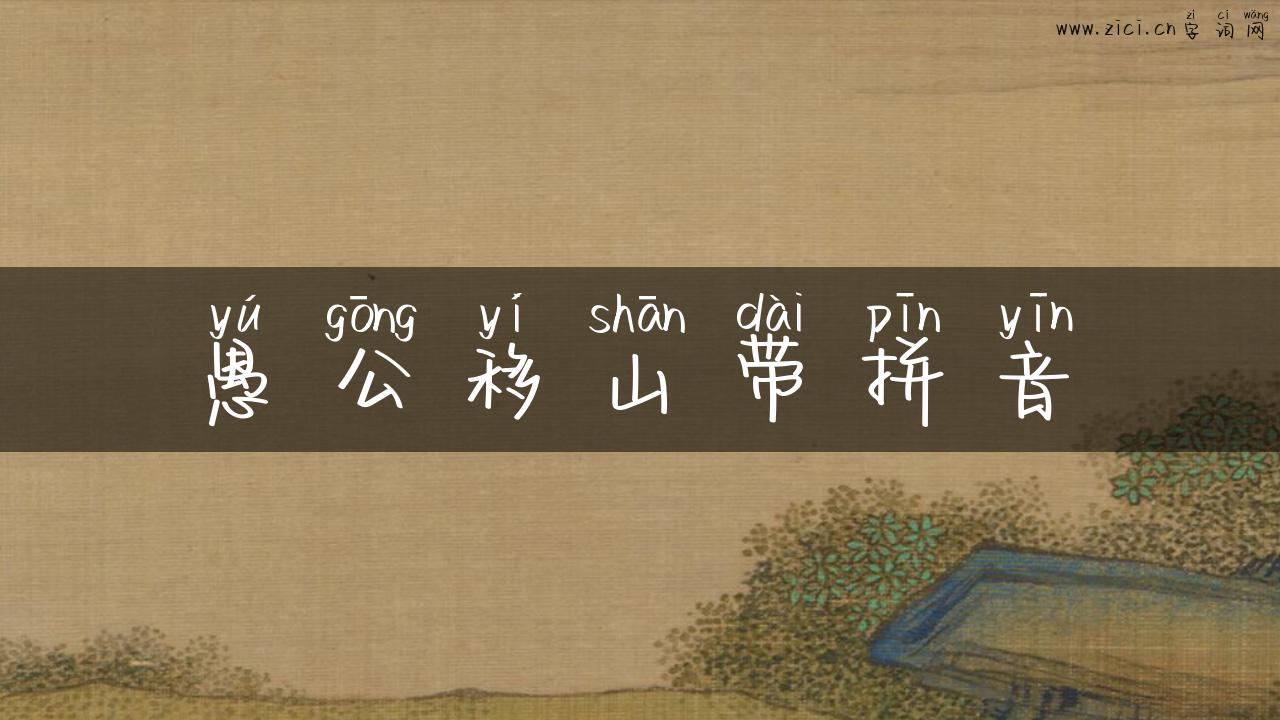 zì cí wǎng
www.zici.cn字词网
yú gōng yí shān dài pīn yīn
愚公移山带拼音